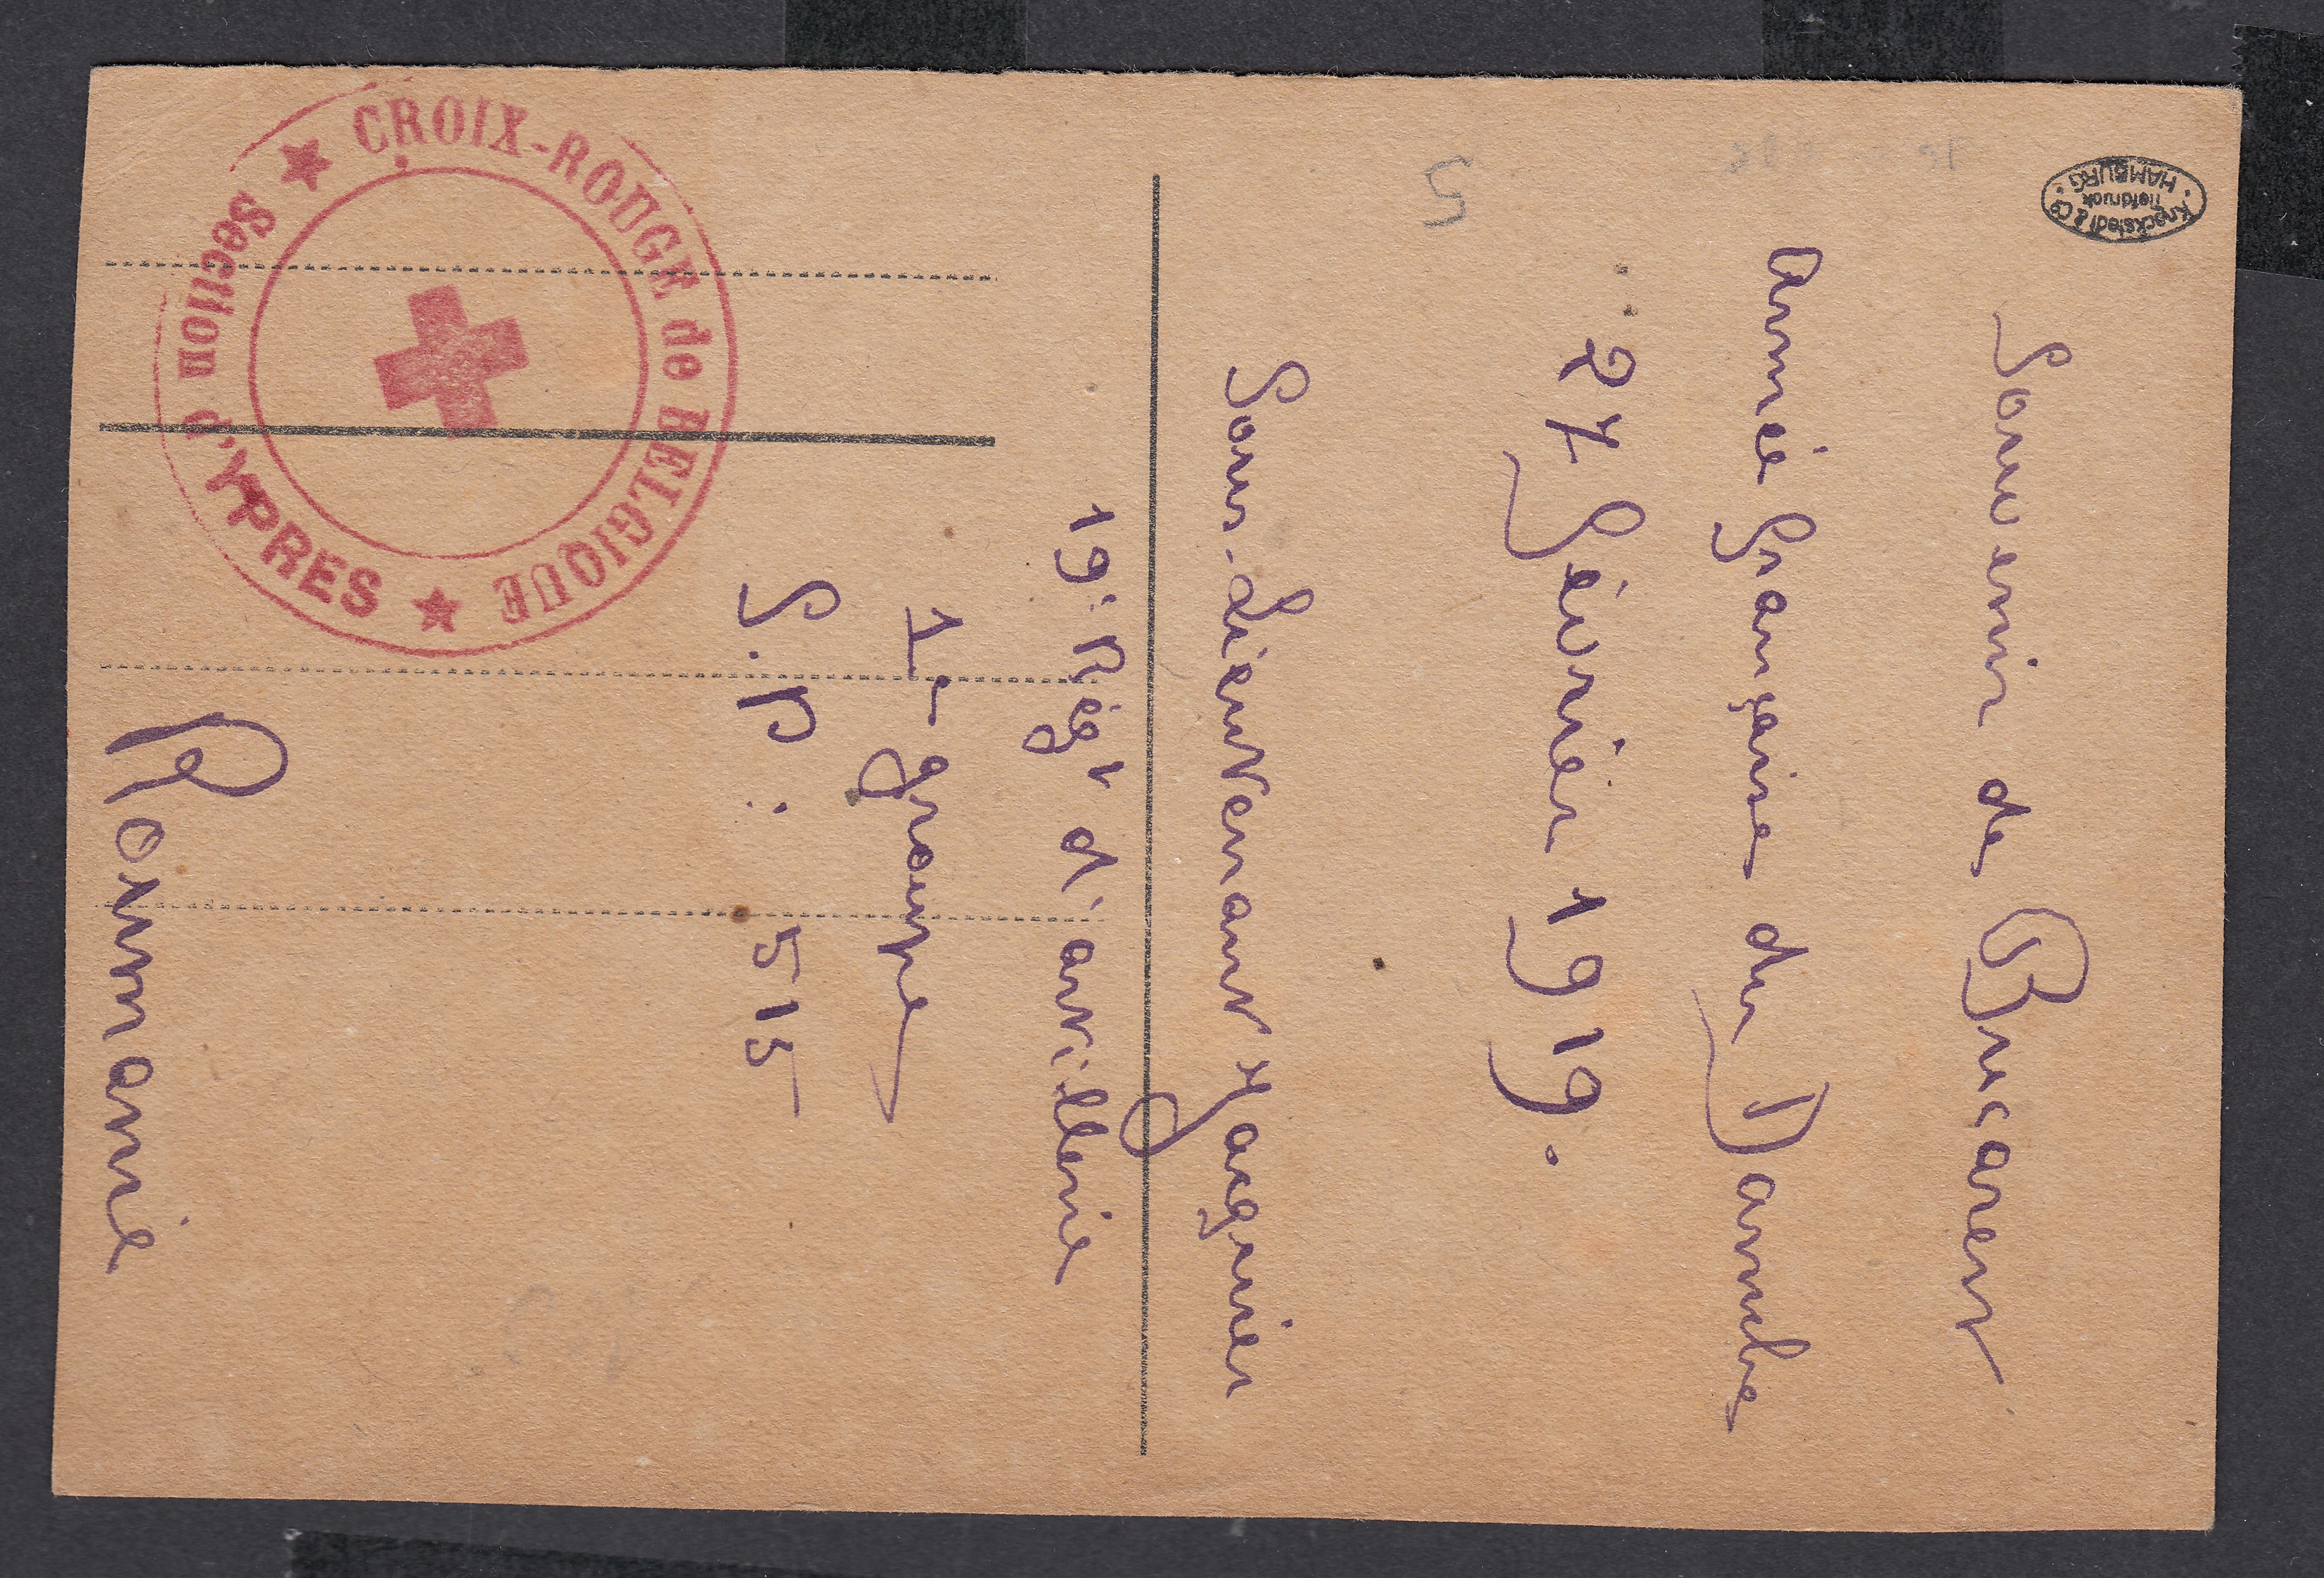 Souvenir de Bucarest
Armée Française du Danube
27 Février 1919.
Sous-Lieutenant Jacquier
19e Régt d'artillerie
1er groupe
S.P.: 515
Roumanie
CROIX-ROUGE de BELGIQUE
Section d'YPRES
Knackstedt & Co
Tiefdruck
HAMBURG
5